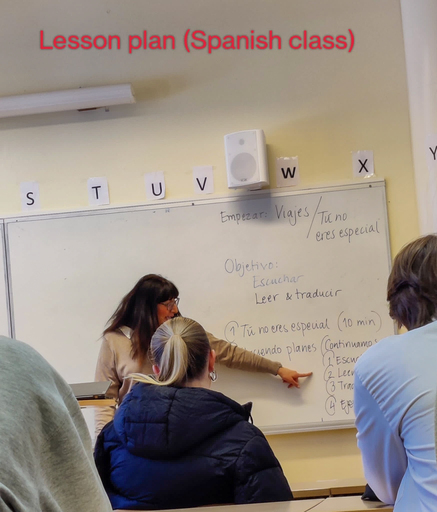 Lesson plan (Spanish class)
S T U V W X Y
Empezar Viajes / Tú no
eres especial
Objetivo:
Escuchar
Leer & traducir
① Tú no eres especial (10 min)
planes (Continuamos
①
② Leer
③
④